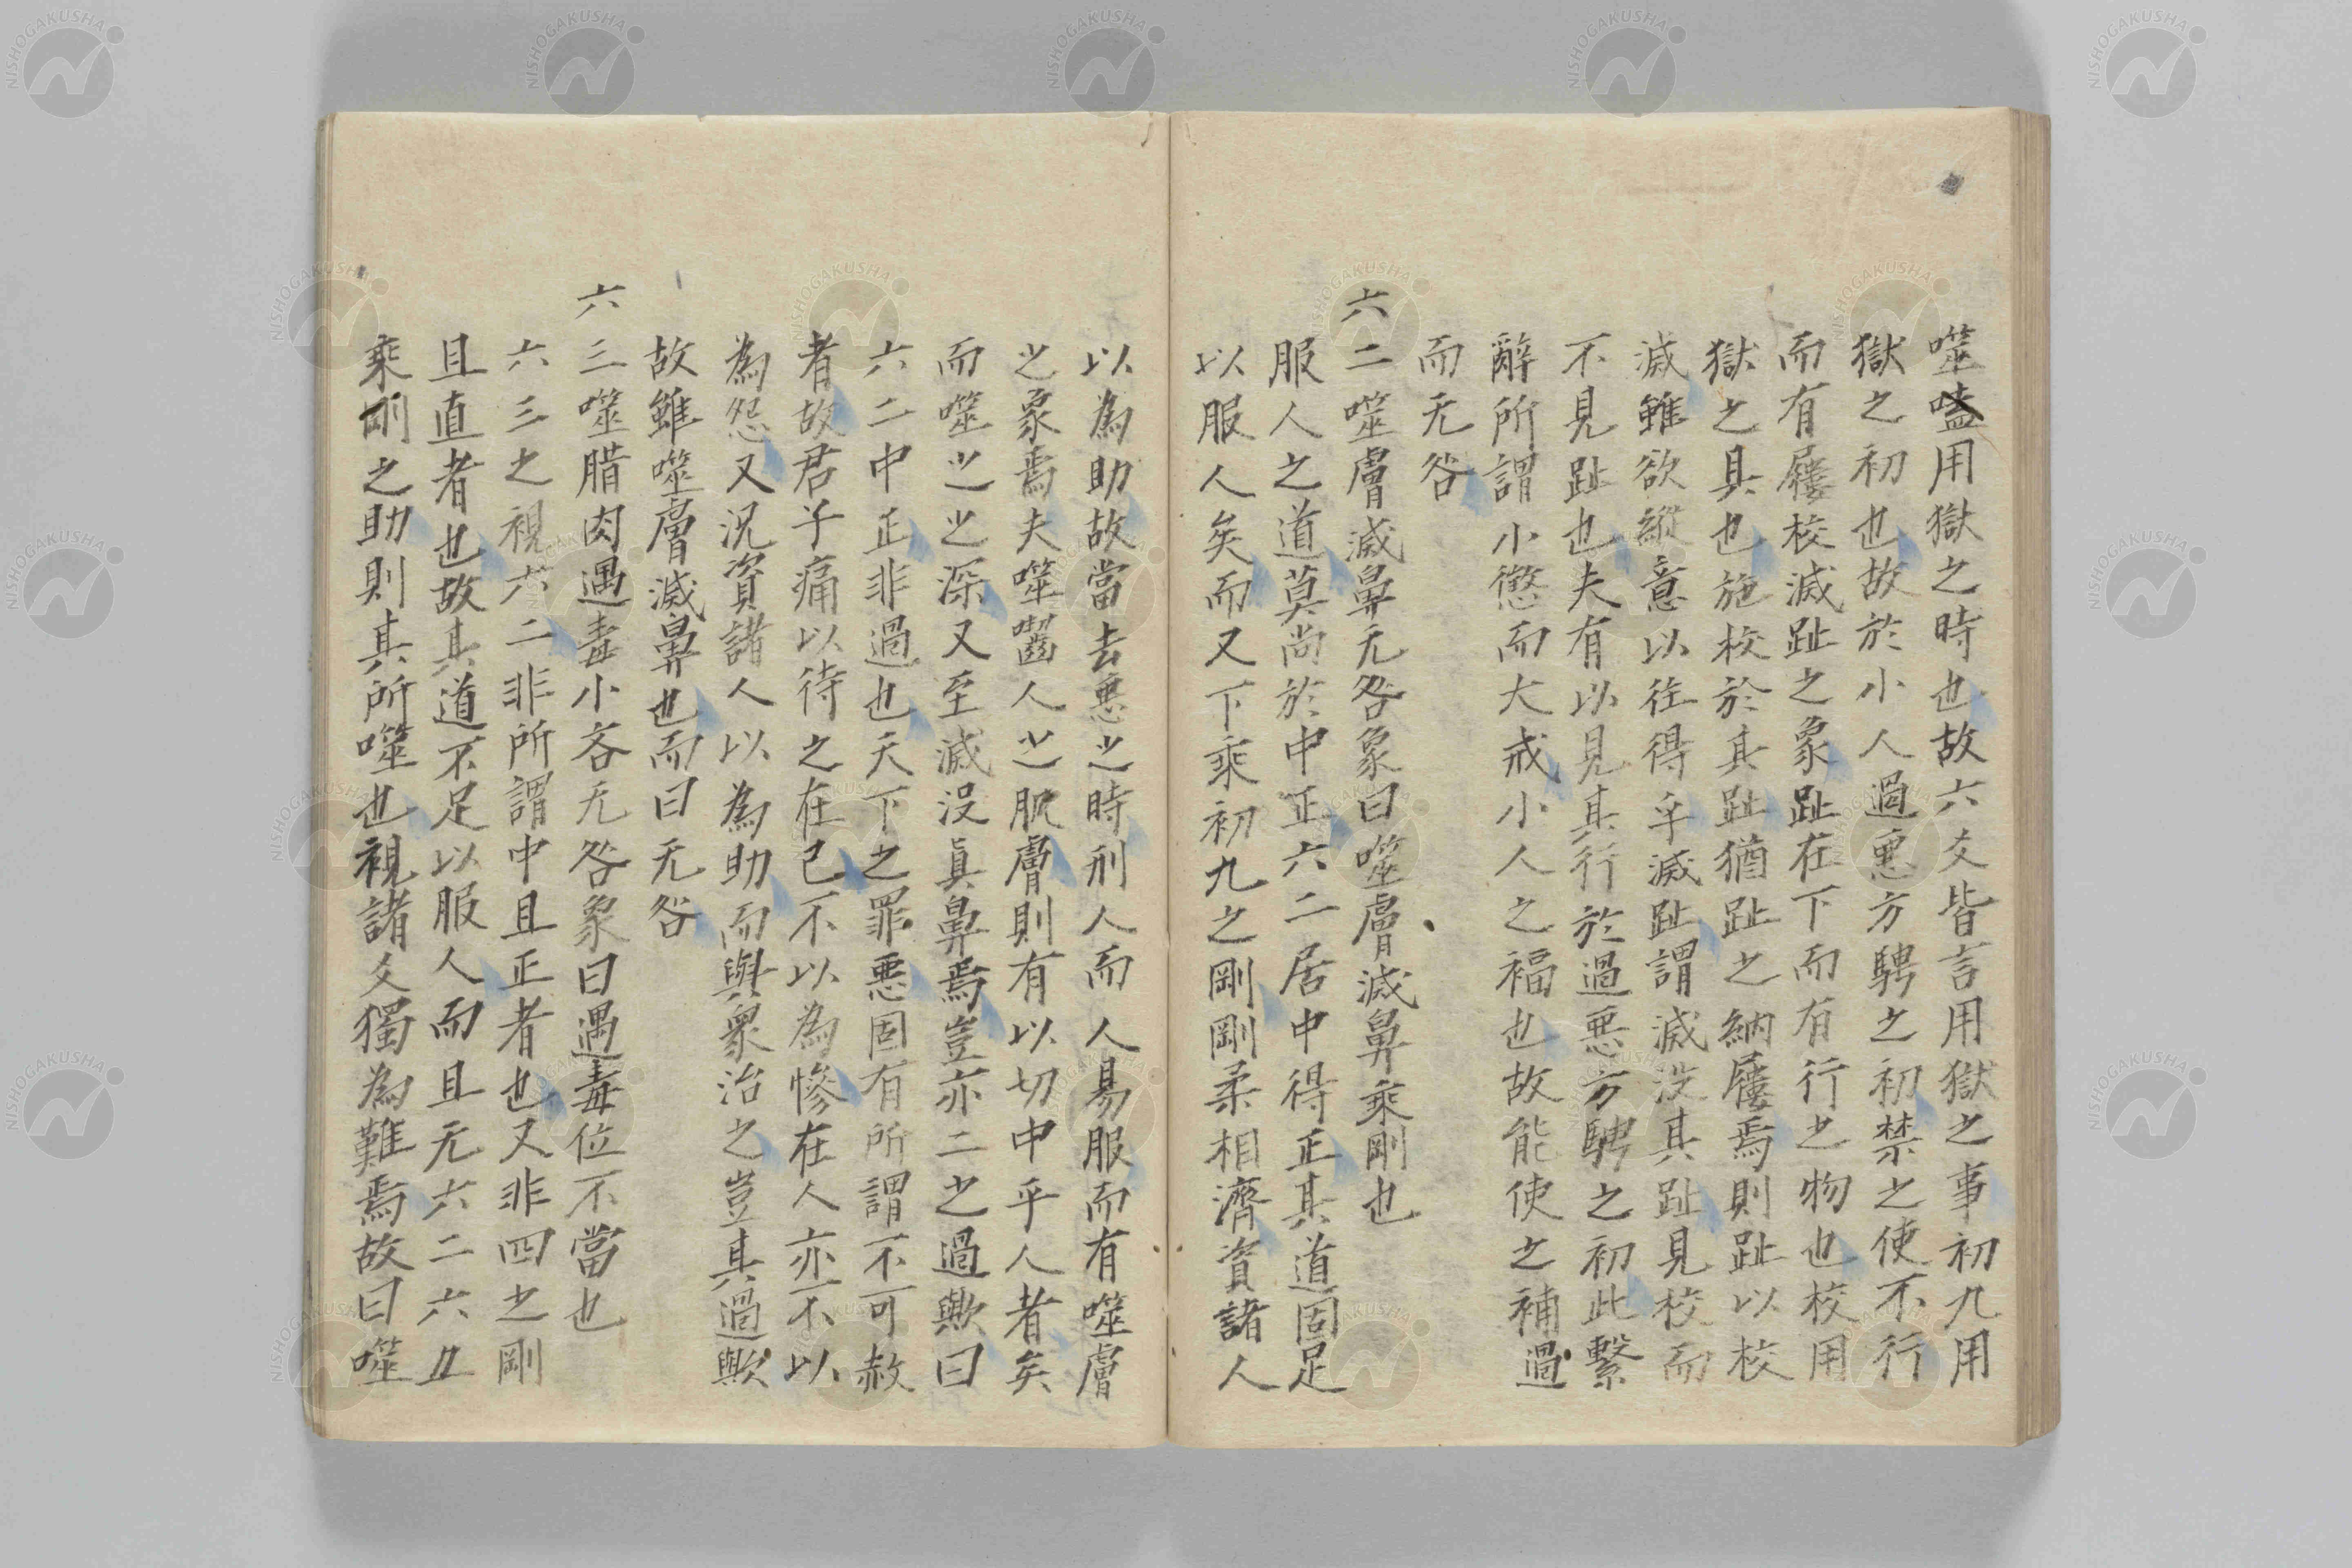 噬嗑用獄之時也故六爻皆言用獄之事初九用
獄之初也故於小人過惡方騁之初禁之使不行
而有屨校滅趾之象趾在下而有行之物也校用
獄之具也施校於其趾猶趾之納屨焉則趾以校
滅雖欲縱意以往得乎滅趾謂滅沒其趾見校而
不見趾也夫有以見其行於過惡方騁之初此繫
辭所謂小懲而大戒小人之福也故能使之補過
而无咎
六二噬膚滅鼻无咎象曰噬膚滅鼻乘剛也
服人之道莫尚於中正六二居中得正其道固足
以服人矣而又下乘初九之剛剛柔相濟資諸人
以為助故當去惡之時刑人而人易服而有噬膚
之象焉夫噬齧人之肌膚則有以切中乎人者矣
而噬之之深又至滅沒眞鼻焉豈亦二之過歟曰
六二中正非過也天下之罪惡固有所謂不可赦
者故君子痛以待之在己不以為慘在人亦不以
為怨又況資諸人以為助而與衆治之豈其過歟
故雖噬膚滅鼻也而曰无咎
六三噬腊肉遇毒小吝无咎象曰遇毒位不當也
六三之視六二非所謂中且正者也又非四之剛
且直者也故其道不足以服人而且无六二六五
乘剛之助則其所噬也視諸爻獨為難焉故曰噬
NISHOGAKUSHA